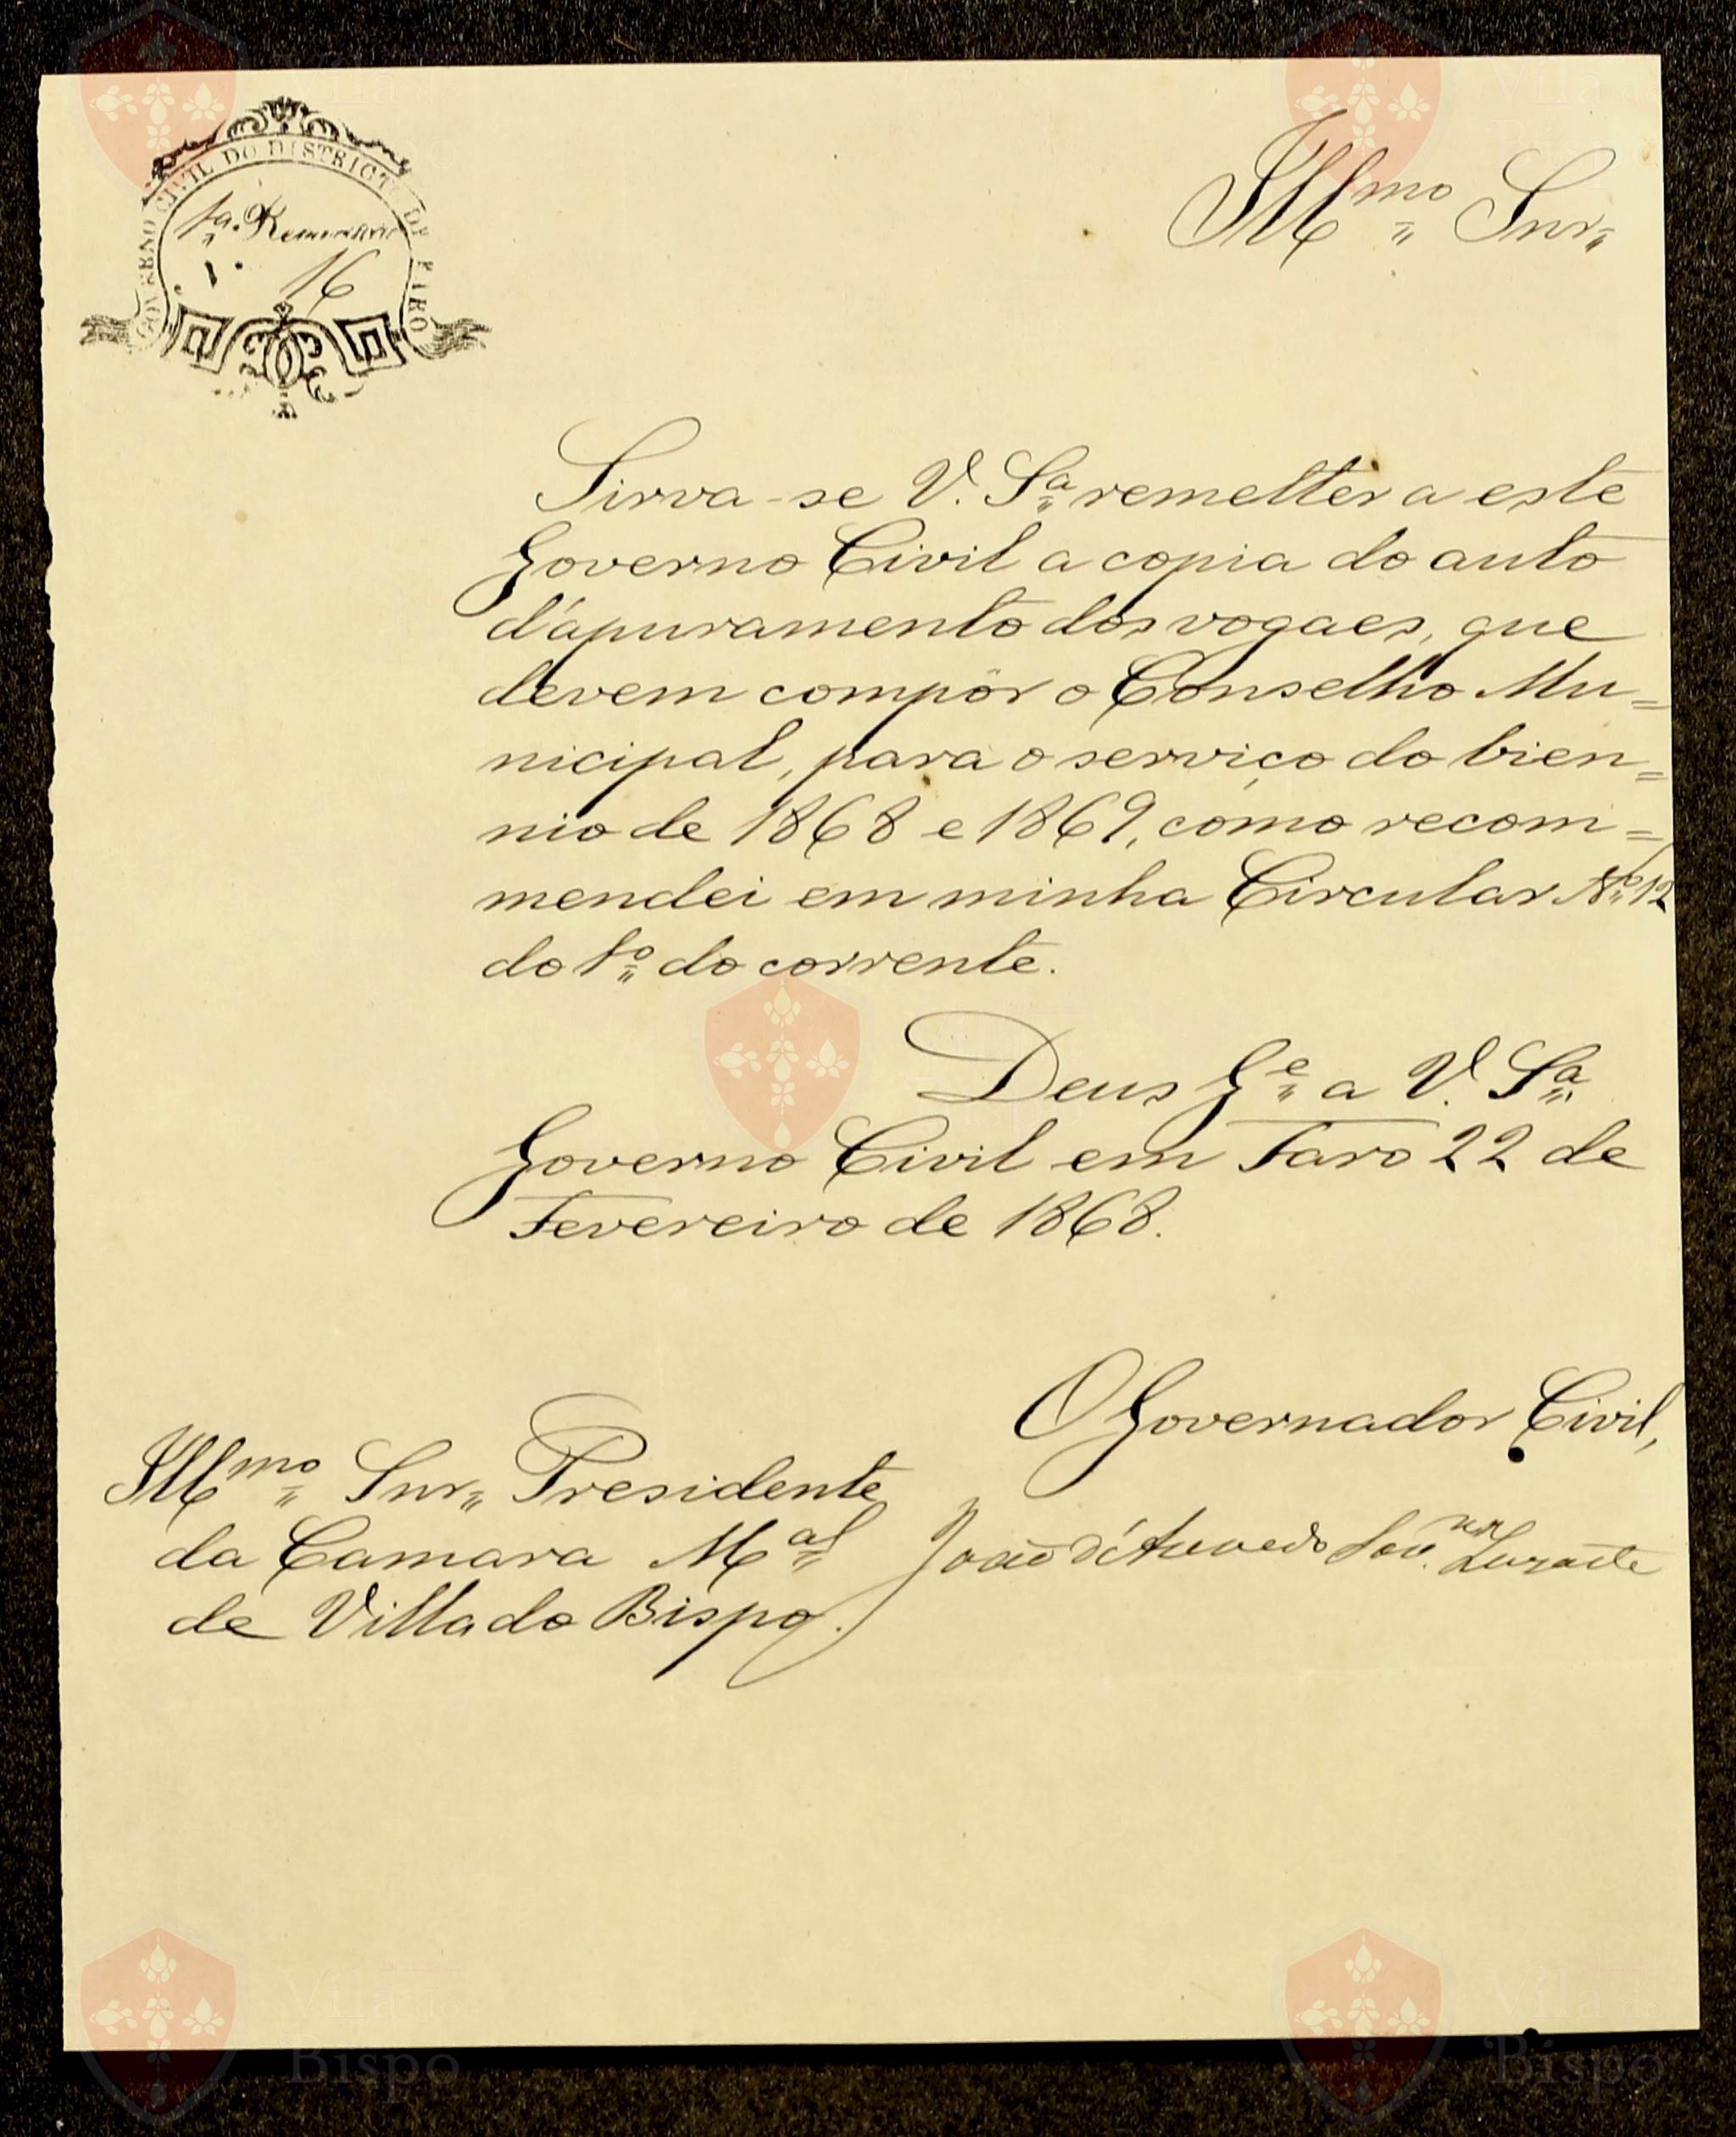 GOVERNO CIVIL DO DISTRICTO DE FARO
1ª
16
Illmo Snr
Sirva-se V. Sª remetter a este
Governo Civil a copia do auto
d'apuramento dos vogaes, que
devem compôr o Conselho Mu=
nicipal, para o serviço do bien=
nio de 1868 e 1869, como recom=
mendei em minha Circular Nº 12
do 1º do corrente.
Deus Ge a V. Sª
Governo Civil em Faro 22 de
Fevereiro de 1868.
O Governador Civil,
Illmo Snr Presidente
da Camara Mal
de Villa do Bispo.
João
Vila
Bispo
Vila
Bispo